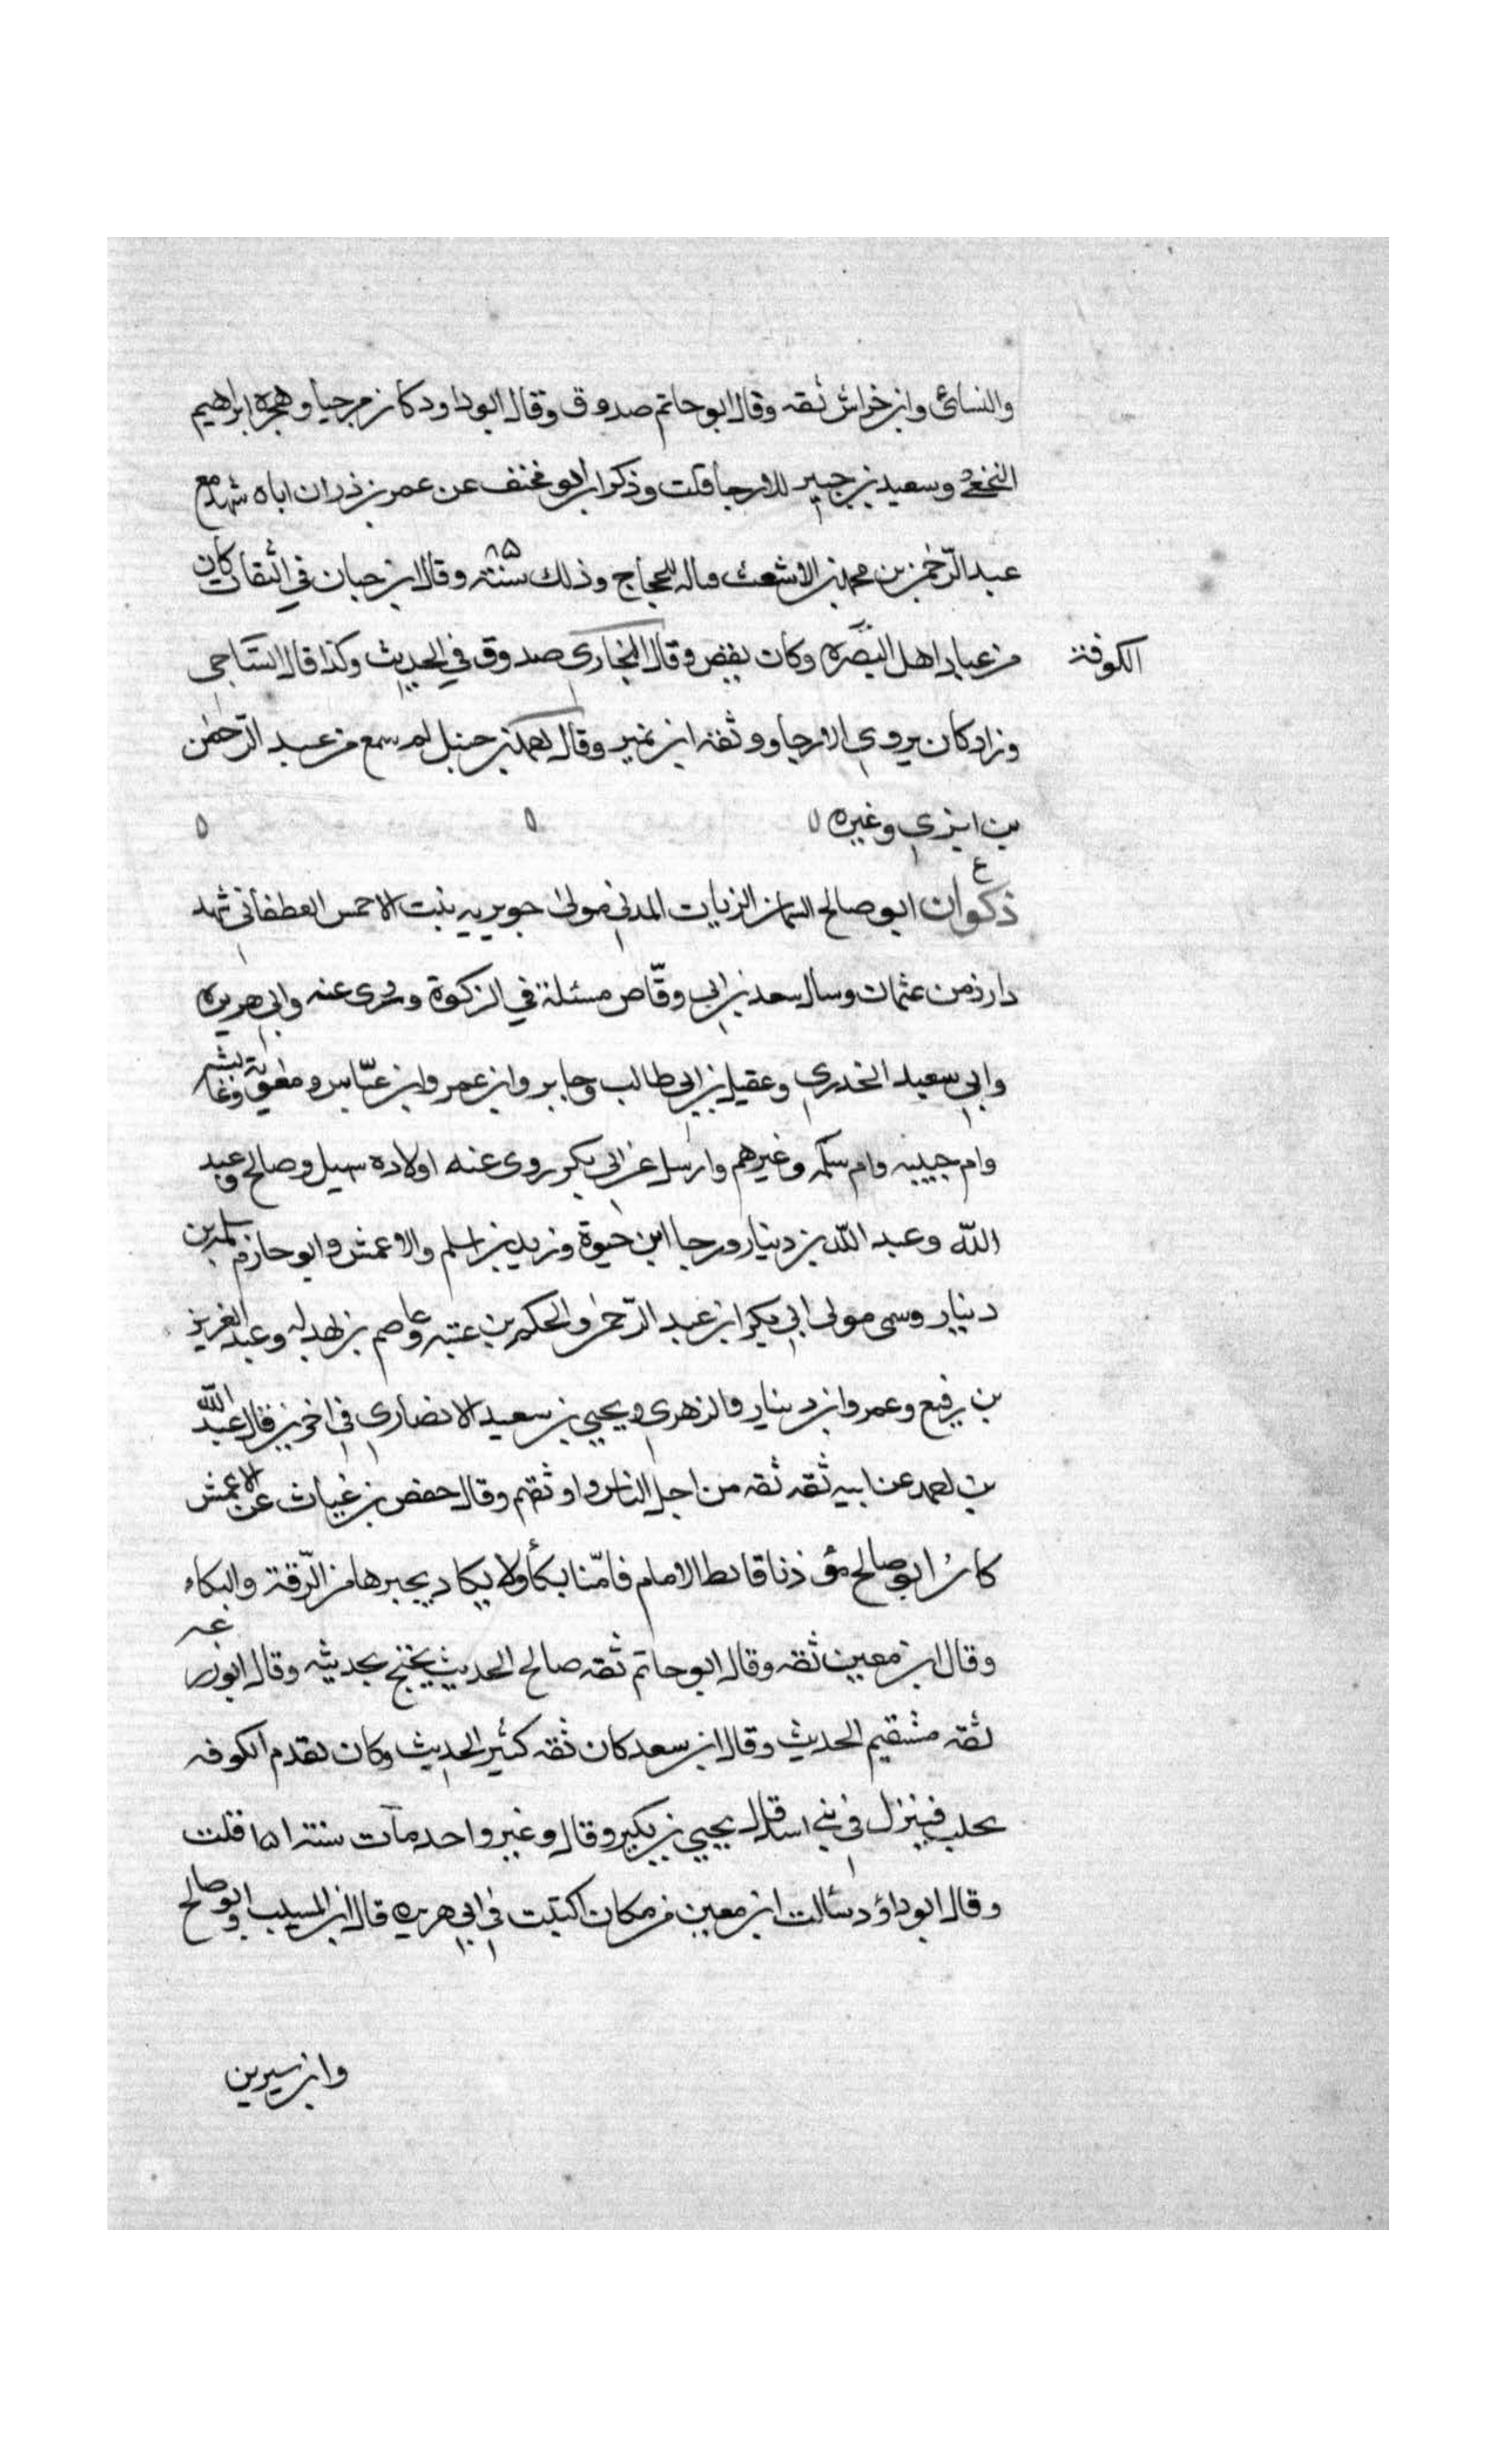 والنسائى وابن خراش ثقه وقال ابو حاتم صدوق وقال ابو داود كان مرجيا وهجره ابراهيم
النخعى وسعيد بن جبير للارجا قلت وذكر ابو مخنف عن عمر بن ذر ان اباه شهد مع
عبد الرّحمن بن محمد بن الاشعث للحجاج وذلك سنة ٨٥ وقال ابن حبان في الثقات كان
من عباد اهل البصره وكان يقص وقال البخارى صدوق في الحديث وكذا قال السّاجى
الكوفة
وزاد كان يروى الارجا ووثقه ابن نمير وقال احمد بن حنبل لم يسمع من عبد الرّحمن
بن ابزى وغيره
ع
ذكوان ابو صالح السمان الزيات المدنى مولى جويريه بنت الاحمس الغطفانى شهد
دار زمن عثمان وسال سعد بن ابى وقّاص مسئلة في الزكوة وروى عنه وابى هريره
وابى سعيد الخدرى وعقيل بن ابى طالب وجابر وابن عمر وابن عبّاس ومعوية وعائشه
وام حبيبه وام سلمه وغيرهم وارسل عن ابى بكر روى عنه اولاده سهيل وصالح وعبد
اللّه وعبد اللّه بن دينار ورجا ابن حيوة وزيد بن اسلم والاعمش وابو حازم سلمه بن
دينار وسمى مولى ابى بكر ابن عبد الرّحمن والحكم بن عتبه وعاصم بن بهدله وعبد العزيز
بن رفيع وعمرو ابن دينار والزهرى ويحيى بن سعيد الانصارى فى اخرين قال عبد اللّه
بن احمد عن ابيه ثقه ثقه من اجل الناس واوثقهم وقال حفص بن غياث عن الاعمش
كان ابو صالح مؤذنا فابطا الامام فامّنا بكأ ولا يكاد يجيزها من الرّقة والبكاء
وقال ابن معين ثقه وقال ابو حاتم ثقه صالح الحديث يحتج بحديثه وقال ابو زرعه
ثقه مستقيم الحديث وقال ابن سعد كان ثقه كثير الحديث وكان يقدم الكوفه
يجلب فينزل فى بنى اسد قال يحيى بن بكير وقال وغير واحد مات سنة ١٥١ قلت
وقال ابو داؤد سئالت ابن معين من كان اثبت فى ابى هريره قال ابن المسيب وابو صالح
وابن سيرين